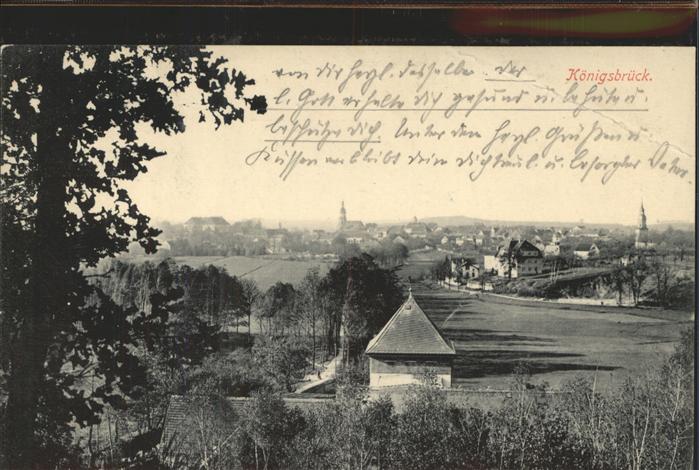 von Dir herzl. dasselbe der
l. Gott erhalte Dich gesund u. behüte u.
beschütze Dich. Unter den herzl. Grüßen u.
Küssen verbleibt Dein Dich u. besorgter Vater
Königsbrück.